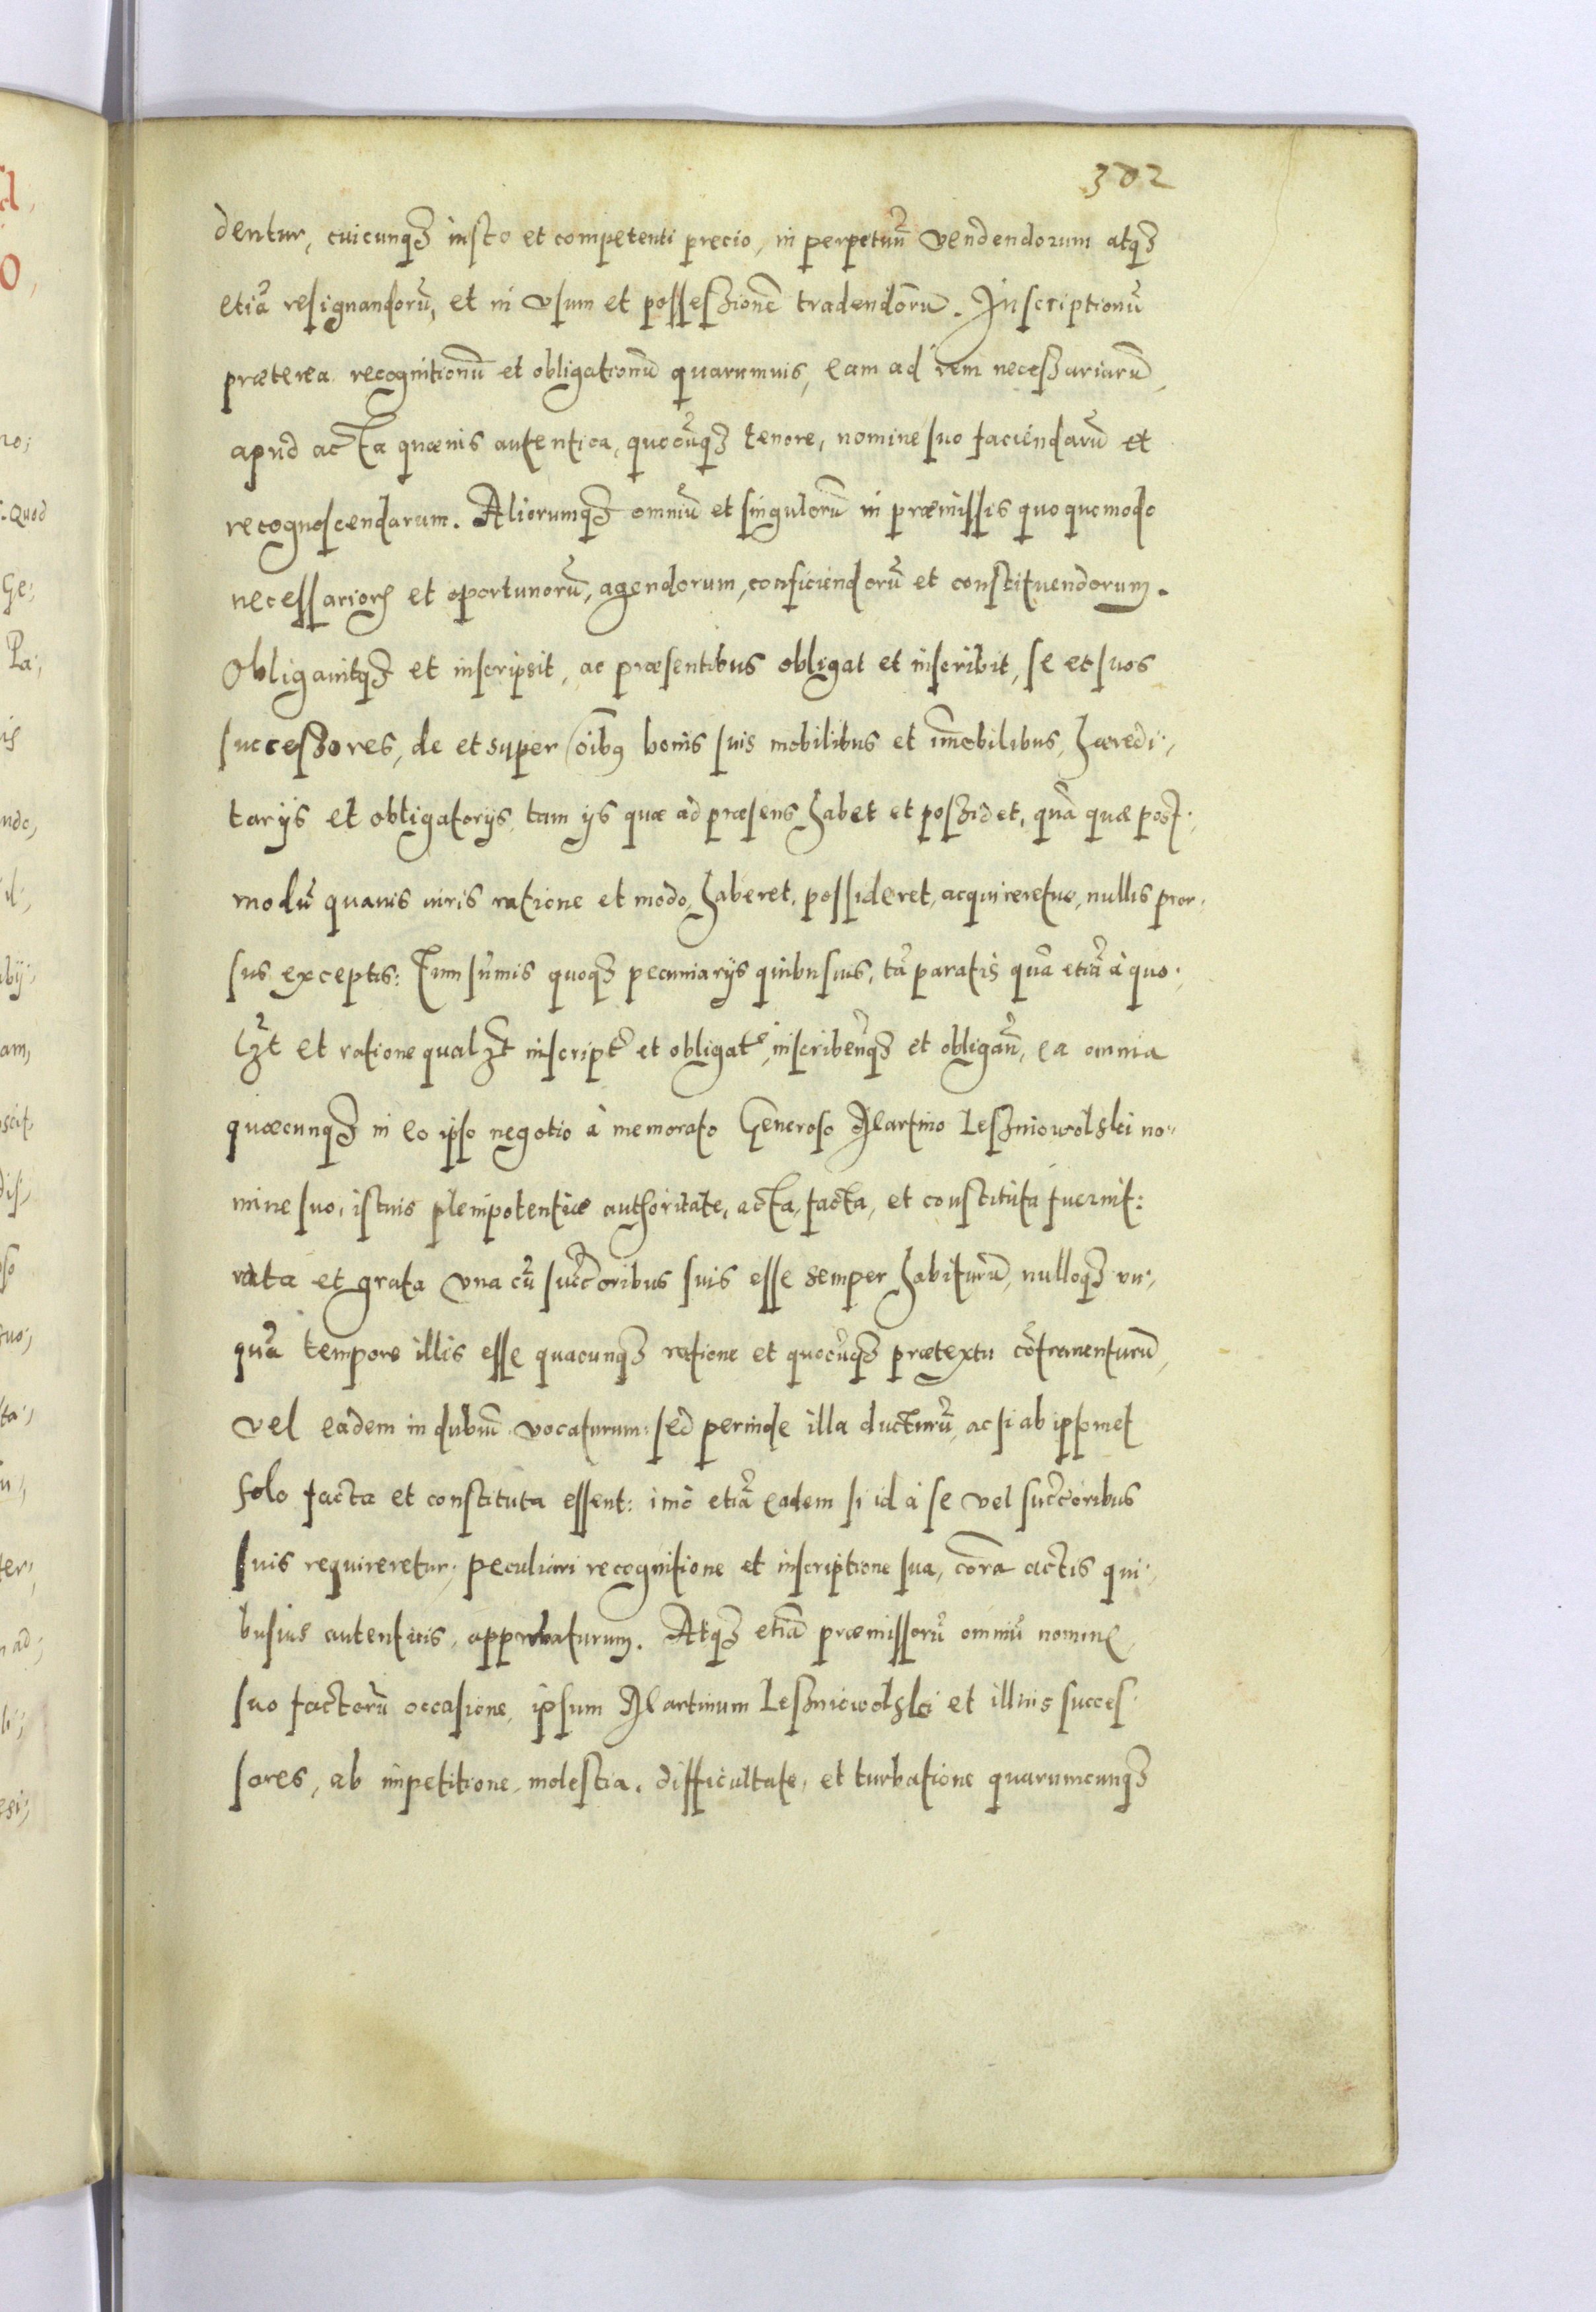 302
dentur, cuicunqȝ iusto et competenti precio, in perpetuũ vendendorum atqȝ
etiã resignandorũ, et in vsum et possessionẽ tradendorũ. Inscriptionũ
præterea recognitionũ et obligationũ quarumuis, eam ad rem necessariarũ,
apud acta quæuis autentica, quocũqȝ tenore, nomine suo faciendarũ et
recognoscendarum. Aliorumqȝ omniũ et singulorũ in præmissis quoquomodo
necessarioꝝ et oportunorũ, agendorum, conficiendorũ et constituendorum.
Obligauitqȝ et inscripsit, ac præsentibus obligat et inscribit, se et suos
successores, de et super oĩbꝫ bonis suis mobilibus et im̃obilibus, hæredi-,
tarijs et obligatorijs, tam ijs quæ ad præsens habet et possidet, quã quæ post-,
modũ quauis iuris ratione et modo, haberet, possideret, acquireretue, nullis pror-,
sus exceptis: Tum sum̃is quoqȝ pecuniarijs quibusuis, tã paratis quã etiã à quo-,
lȝt et ratione qualȝt inscript̃ et obligat̃, inscribeñqȝ et obligañ, ea omnia
quæcunqȝ in eo ipso negotio à memorato Generoso Martino Lesniowolski no-,
mine suo, istius plenipotentiæ authoritate, acta, facta, et constituta fuerint:
rata et grata vna cũ succ̃oribus suis esse semper habiturũ, nulloqȝ vn-,
quã tempore illis esse quacunqȝ ratione et quocũqȝ prætextu cõtrauenturũ,
vel eadem in dubiũ vocaturum: sed perinde illa ducturũ, ac si ab ipsomet
solo facta et constituta essent: imò etiã eadem si id à se vel succ̃oribus
suis requireretur, peculiari recognitione et inscriptione sua, corã actis qui-,
busuis autenticis, approbaturum. Atqȝ etiã præmissorũ omniũ nomine
suo factorũ occasione, ipsum Martinum Lesniowolski et illius succes-
sores, ab impetitione, molestia, difficultate, et turbatione quarumcunqȝ